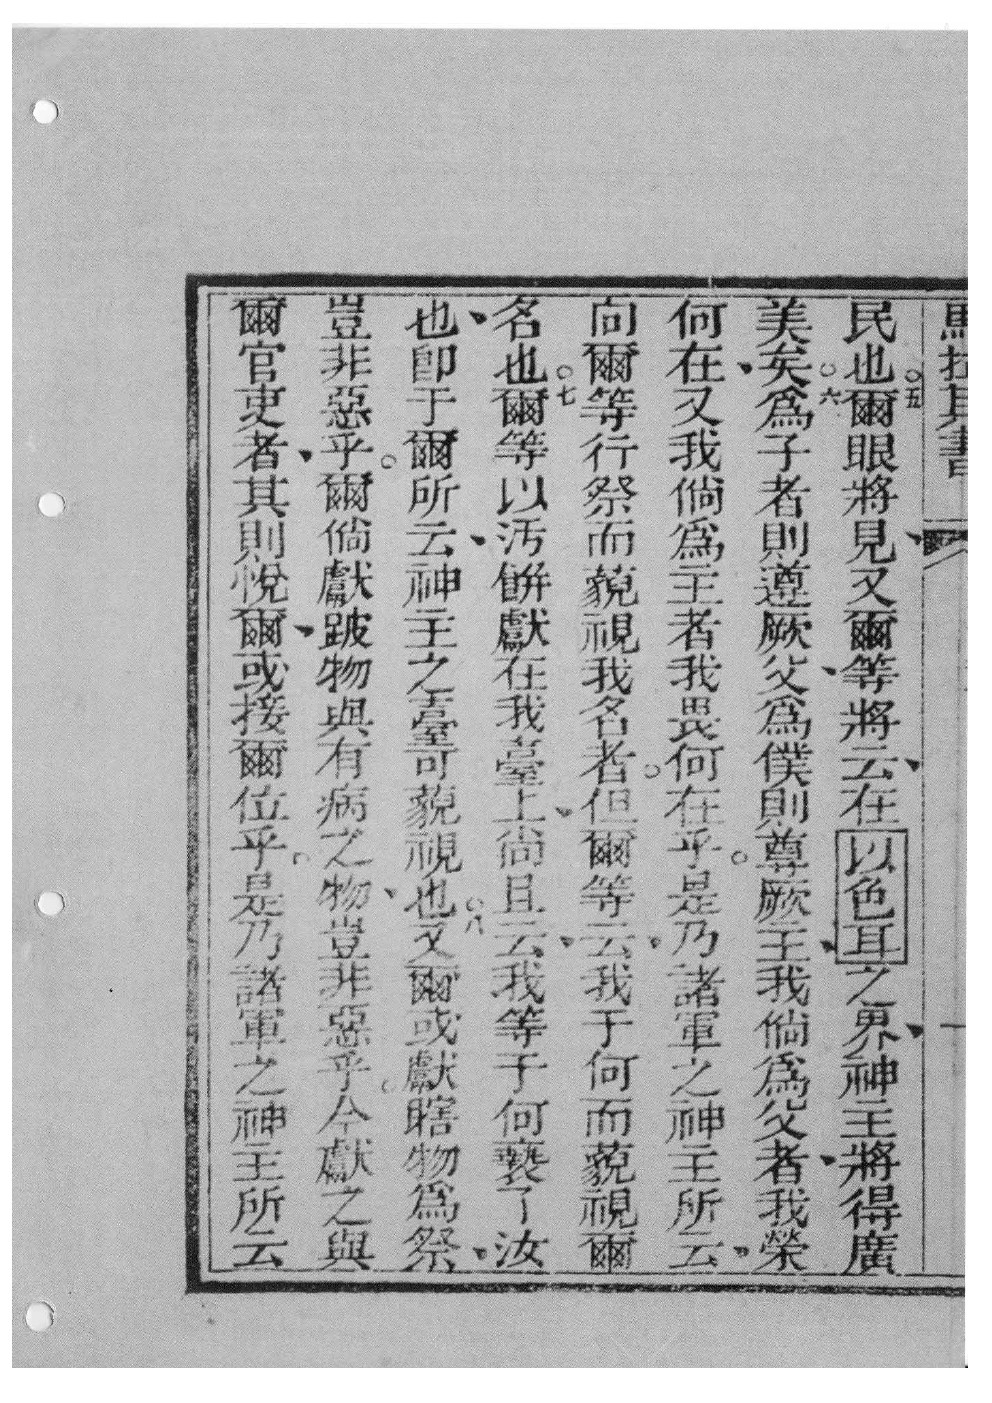 馬拉其書 一
民也○五爾眼將見又爾等將云在以色耳之界神主將得廣
美矣○六爲子者則遵厥父爲僕則尊厥主我倘爲父者我榮
何在又我倘爲主者我畏何在乎是乃諸軍之神主所云
向爾等行祭而藐視我名者但爾等云我于何而藐視爾
名也○七爾等以汚餅獻在我臺上尙且云我等于何褻了汝
也卽于爾所云神主之臺可藐視也○八又爾或獻瞎物爲祭
豈非惡乎爾倘獻跛物與有病之物豈非惡乎今獻之與
爾官吏者其則悅爾或接爾位乎是乃諸軍之神主所云